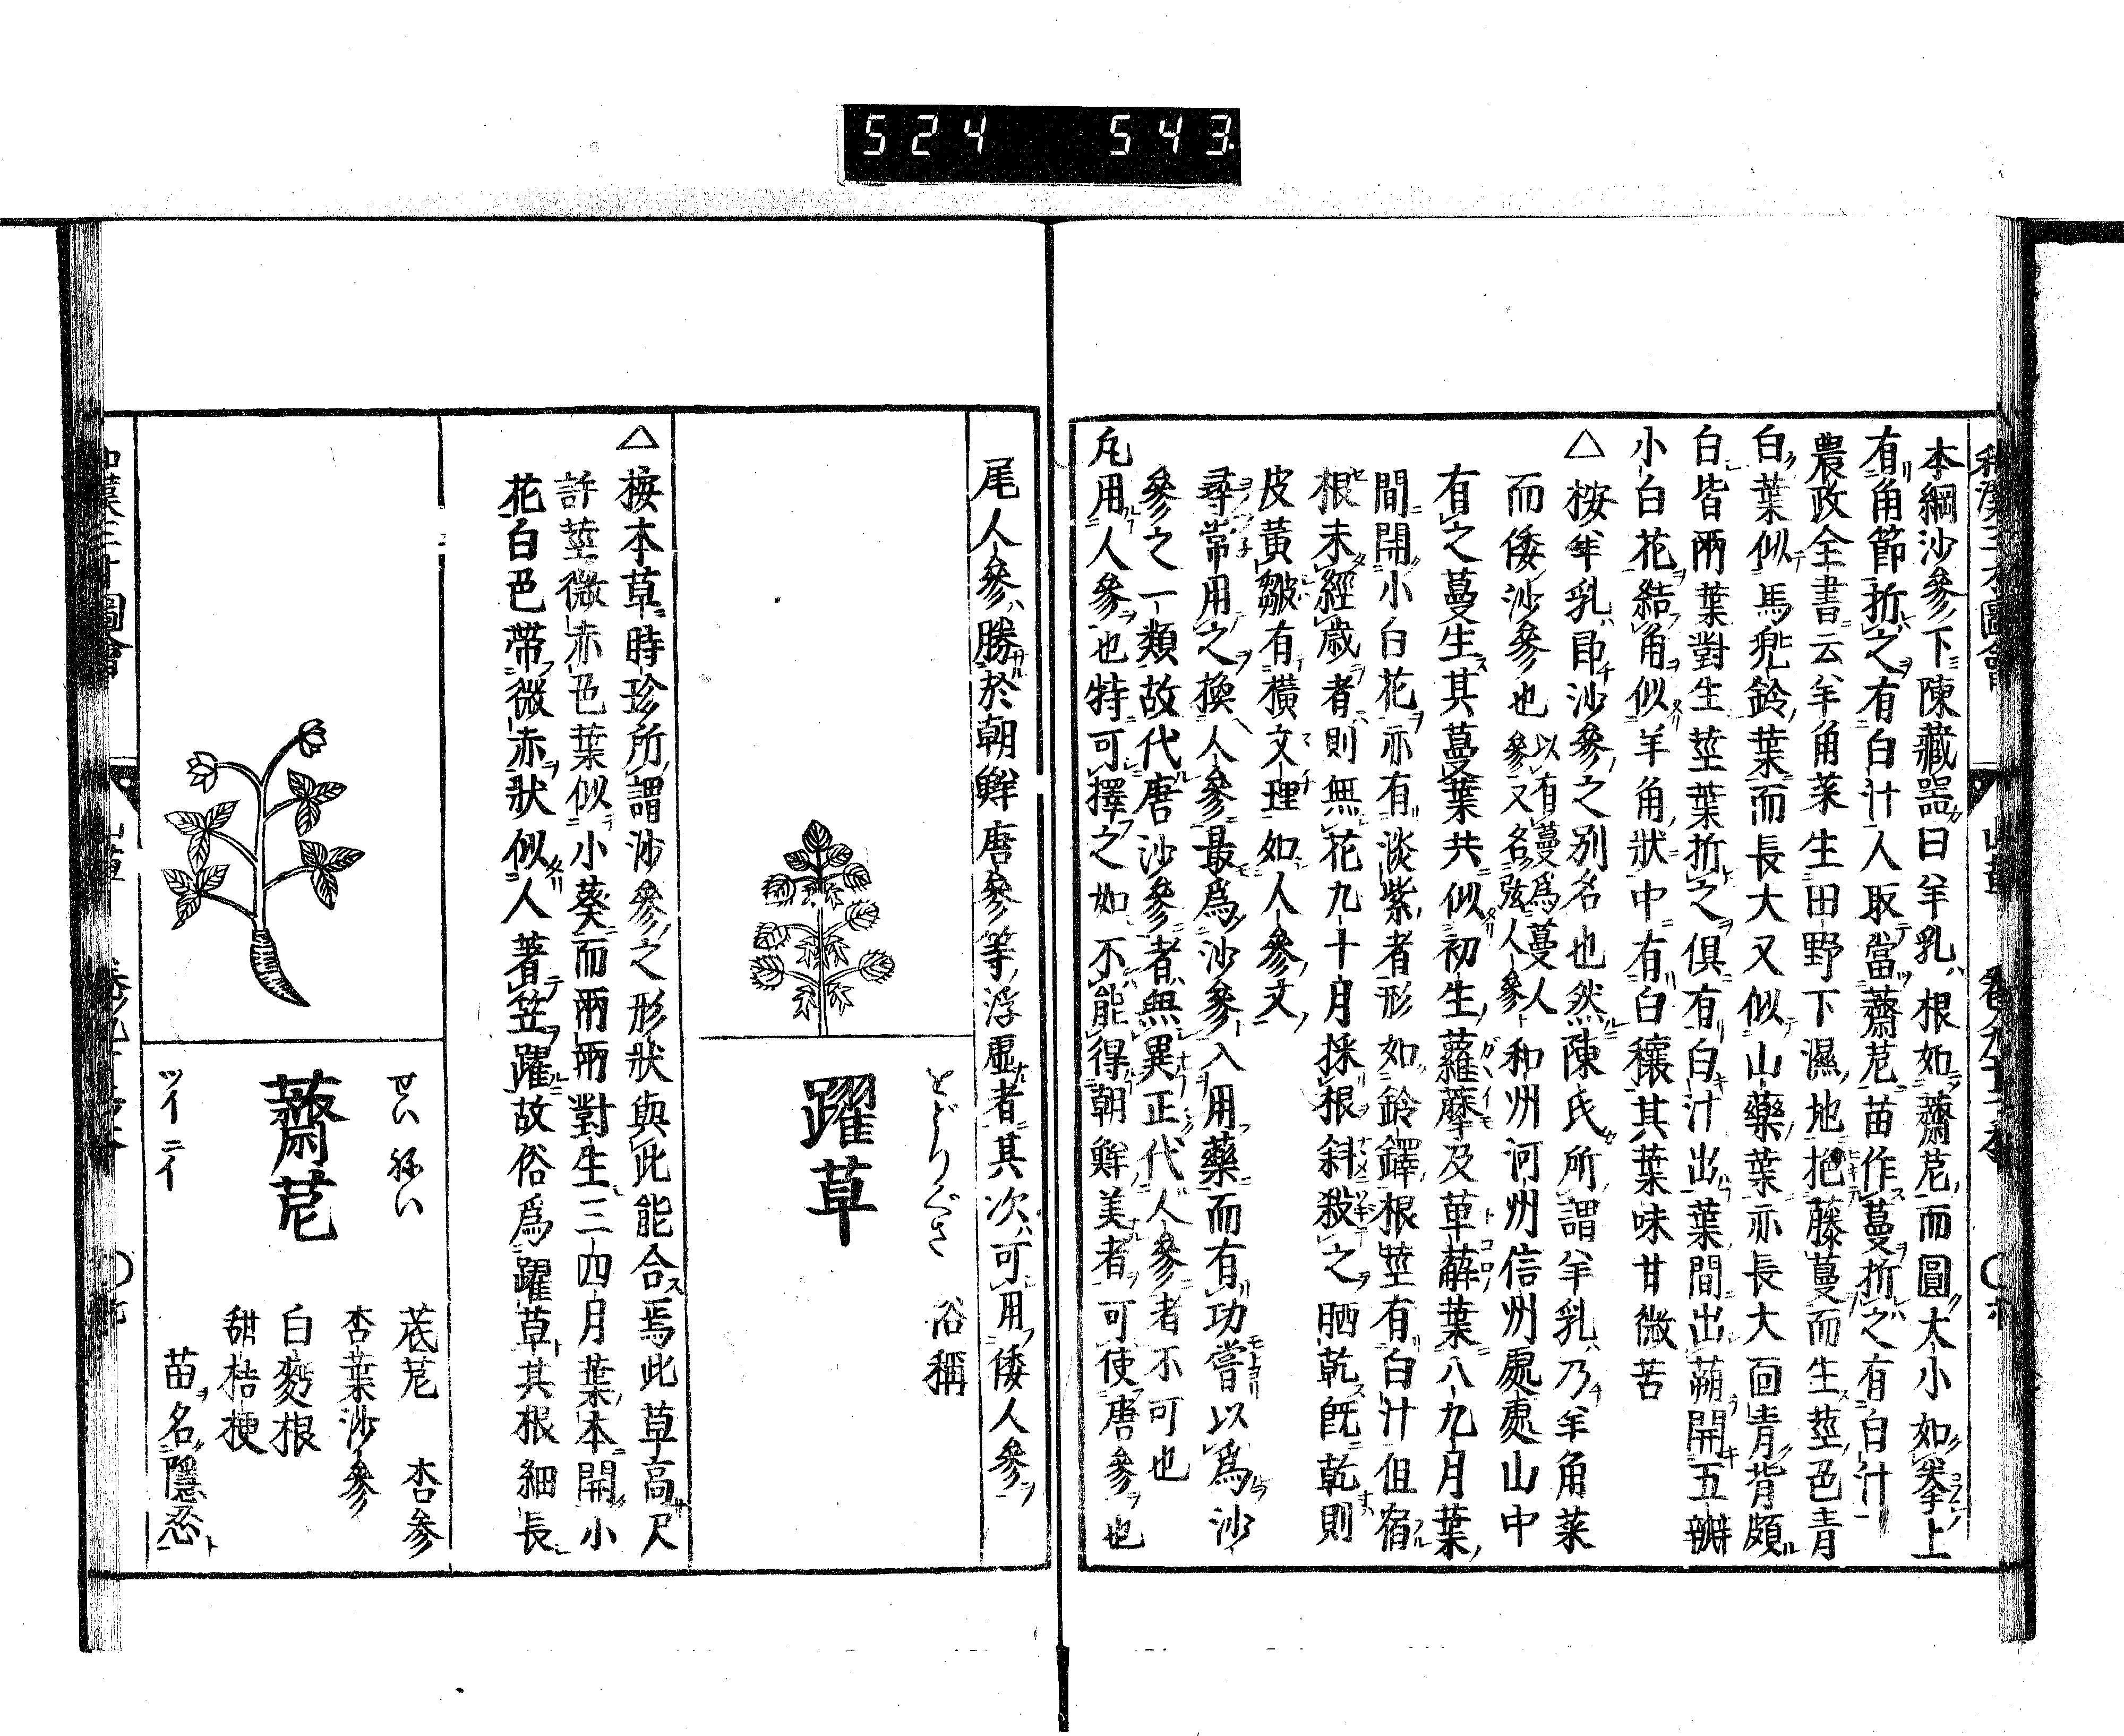 524 543
本綱沙參下陳藏器曰羊乳根如薺苨而圓大小如拳上
有角節折之有白汁人取當薺苨苗作蔓折之有白汁
農政全書云羊角菜生田野下濕地拖藤蔓而生莖色青
白葉似馬兜鈴葉而長大又似山藥葉亦長大面青背頗
白皆兩葉對生莖葉折之俱有白汁出葉間出蒴開五瓣
小白花結角似羊角狀中有白穰其葉味甘微苦
△按羊乳卽沙參之別名也然陳氏所謂羊乳乃羊角菜
而倭沙參也以有蔓爲蔓人參又名弦人參和州河州信州處處山中
有之蔓生其蔓葉共似初生蘿藦及萆薢葉八九月葉
間開小白花亦有淡紫者形如鈴鐸根莖有白汁但宿
根未經歳者則無花九十月採根斜殺之晒乾旣乾則
皮黃皺有橫文理如人參文
尋常用之換人參最爲沙參入用藥而有功嘗以爲沙
參之一類故代唐沙參者無異正代人參者不可也
凡用人參也特可擇之如不能得朝鮮美者可使唐參也
尾人參勝於朝鮮唐參等浮虛者其次可用倭人參
をどりぐさ 俗稱
躍草
△按本草時珍所謂沙參之形狀與此能合焉此草高尺
許莖微赤色葉似小葵而兩兩對生三四月葉本開小
花白色帶微赤狀似人著笠躍故俗爲躍草其根細長
せい ねい
薺苨
ツイ ニイ
苨苨 杏參
杏葉沙參
白麪根
甜桔梗
苗名隱忍